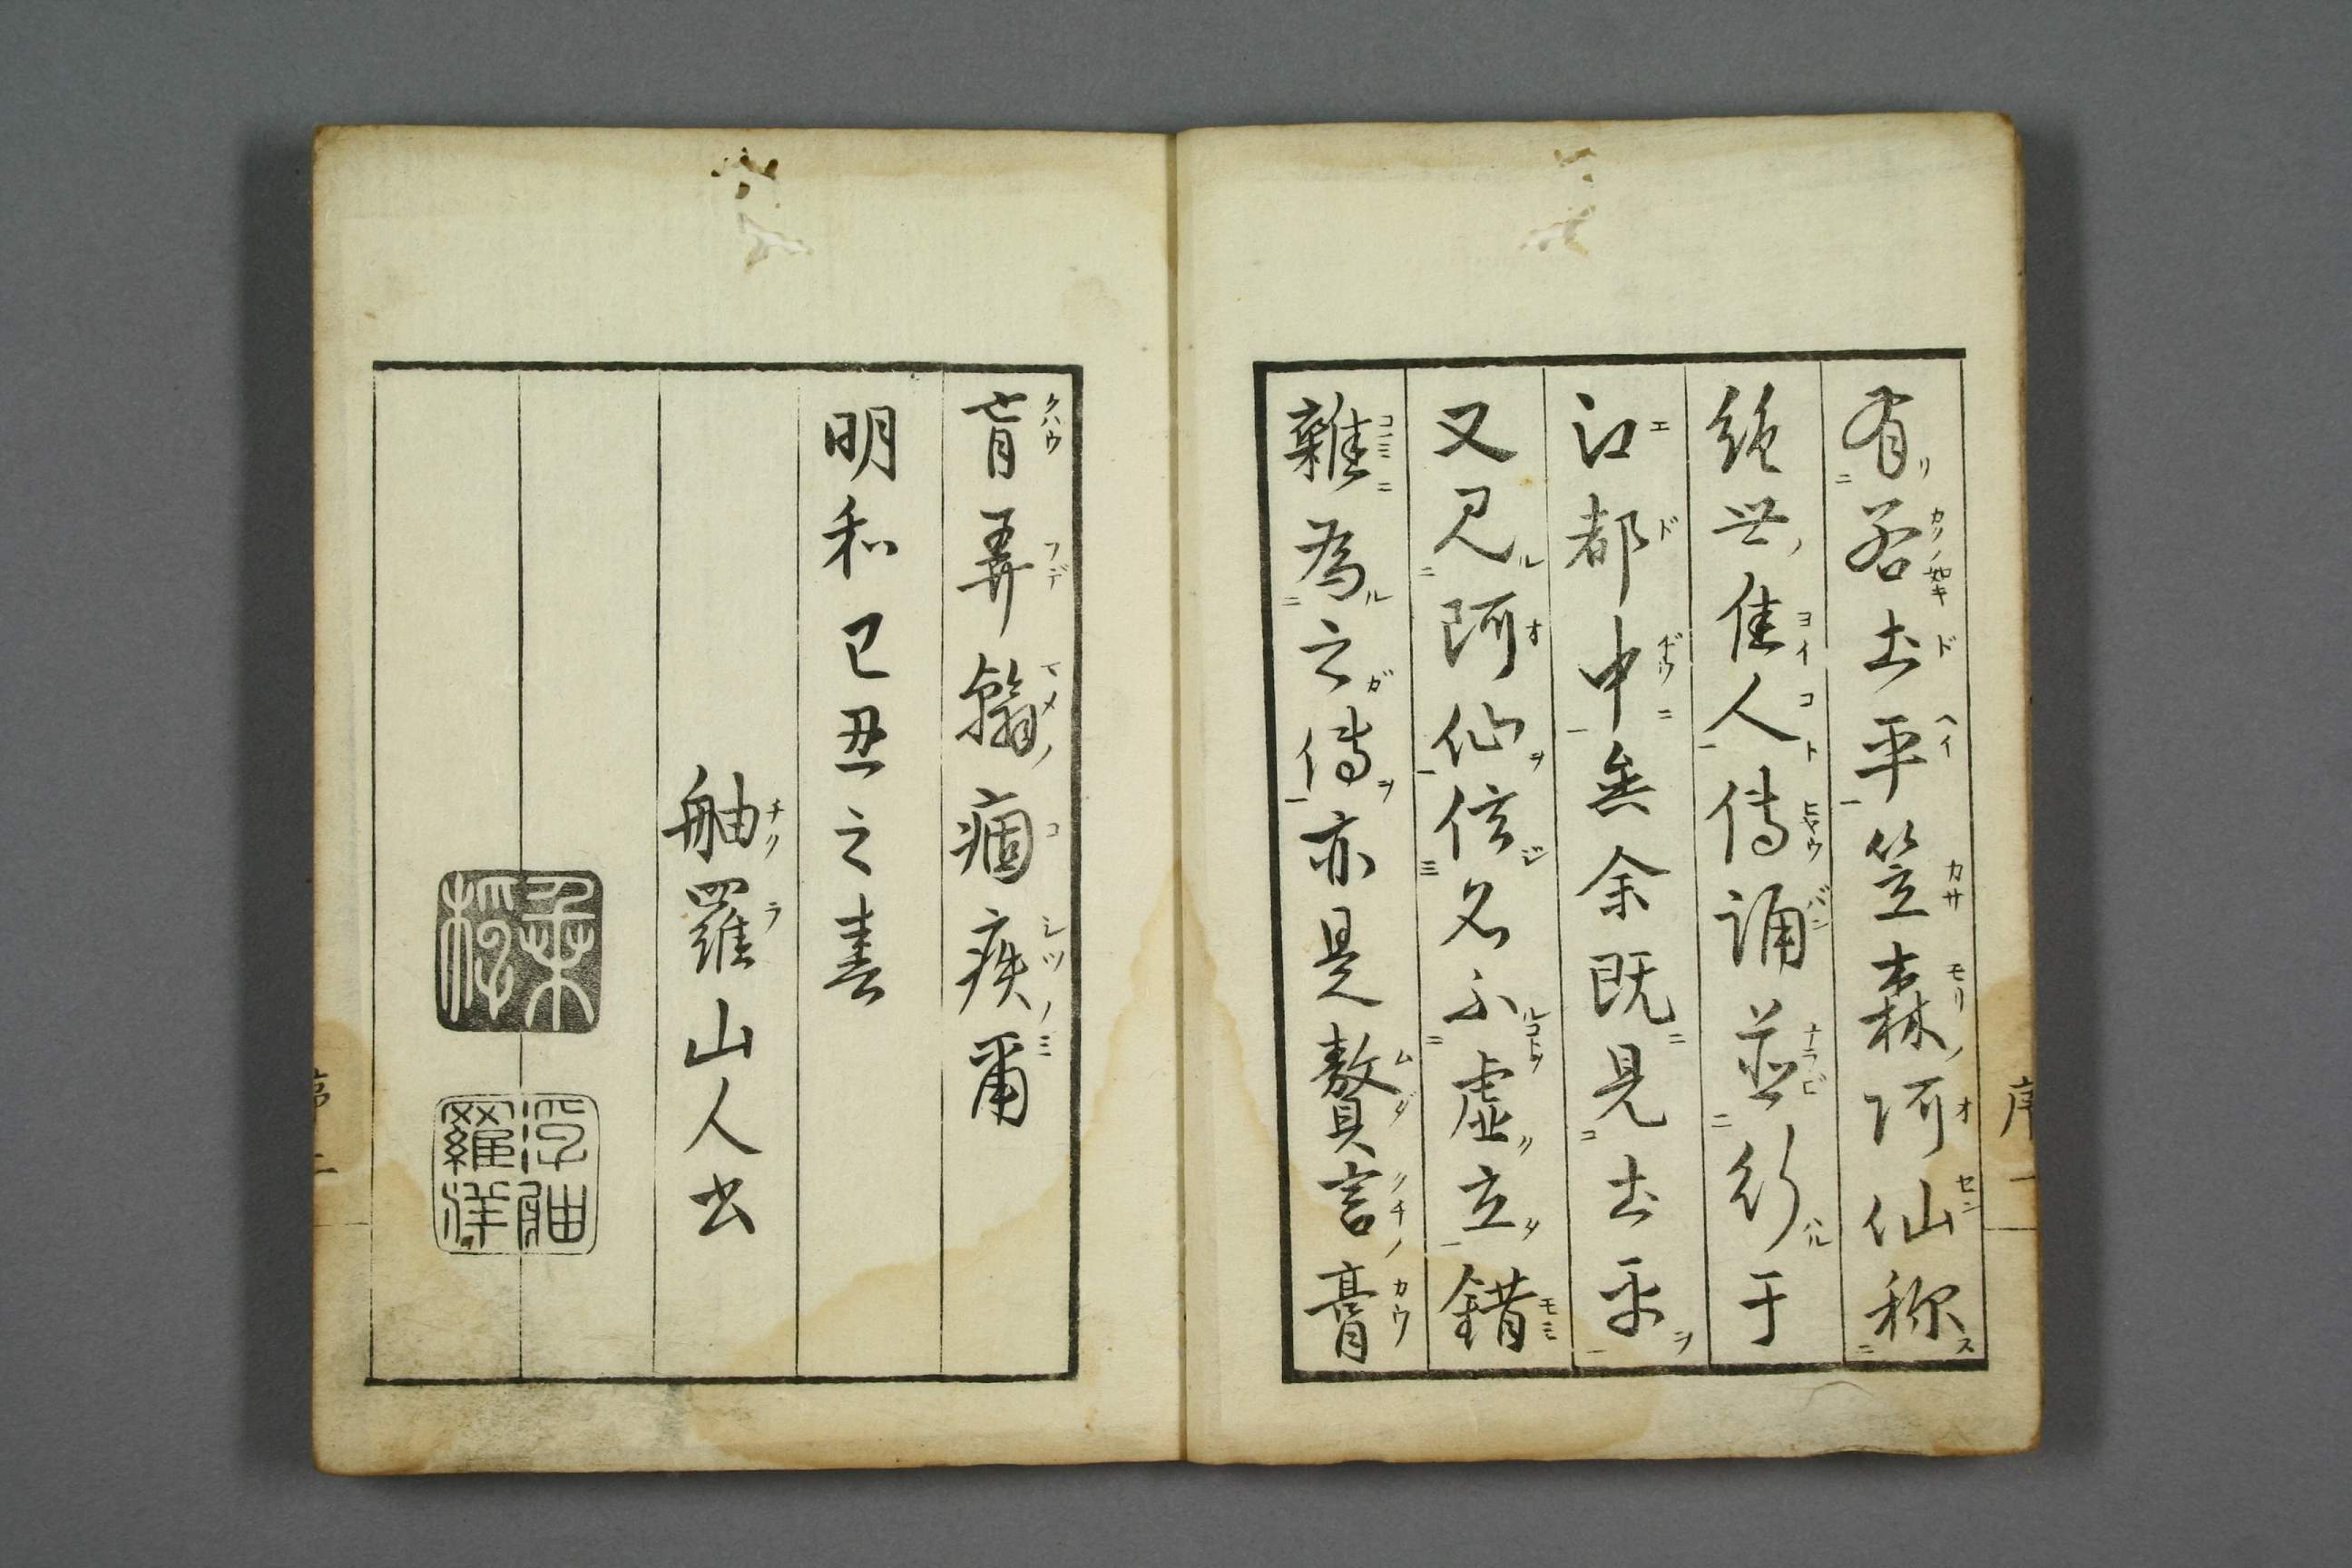 序一
有若土平笠森阿仙称
絶世佳人傳誦並行于
江都中矣余既見土平
又見阿仙信名不虚立錯
雜為之傳亦是贅言膏
肓弄翰痼疾爾
明和己丑之春
舳羅山人書
浮舳
羅洋